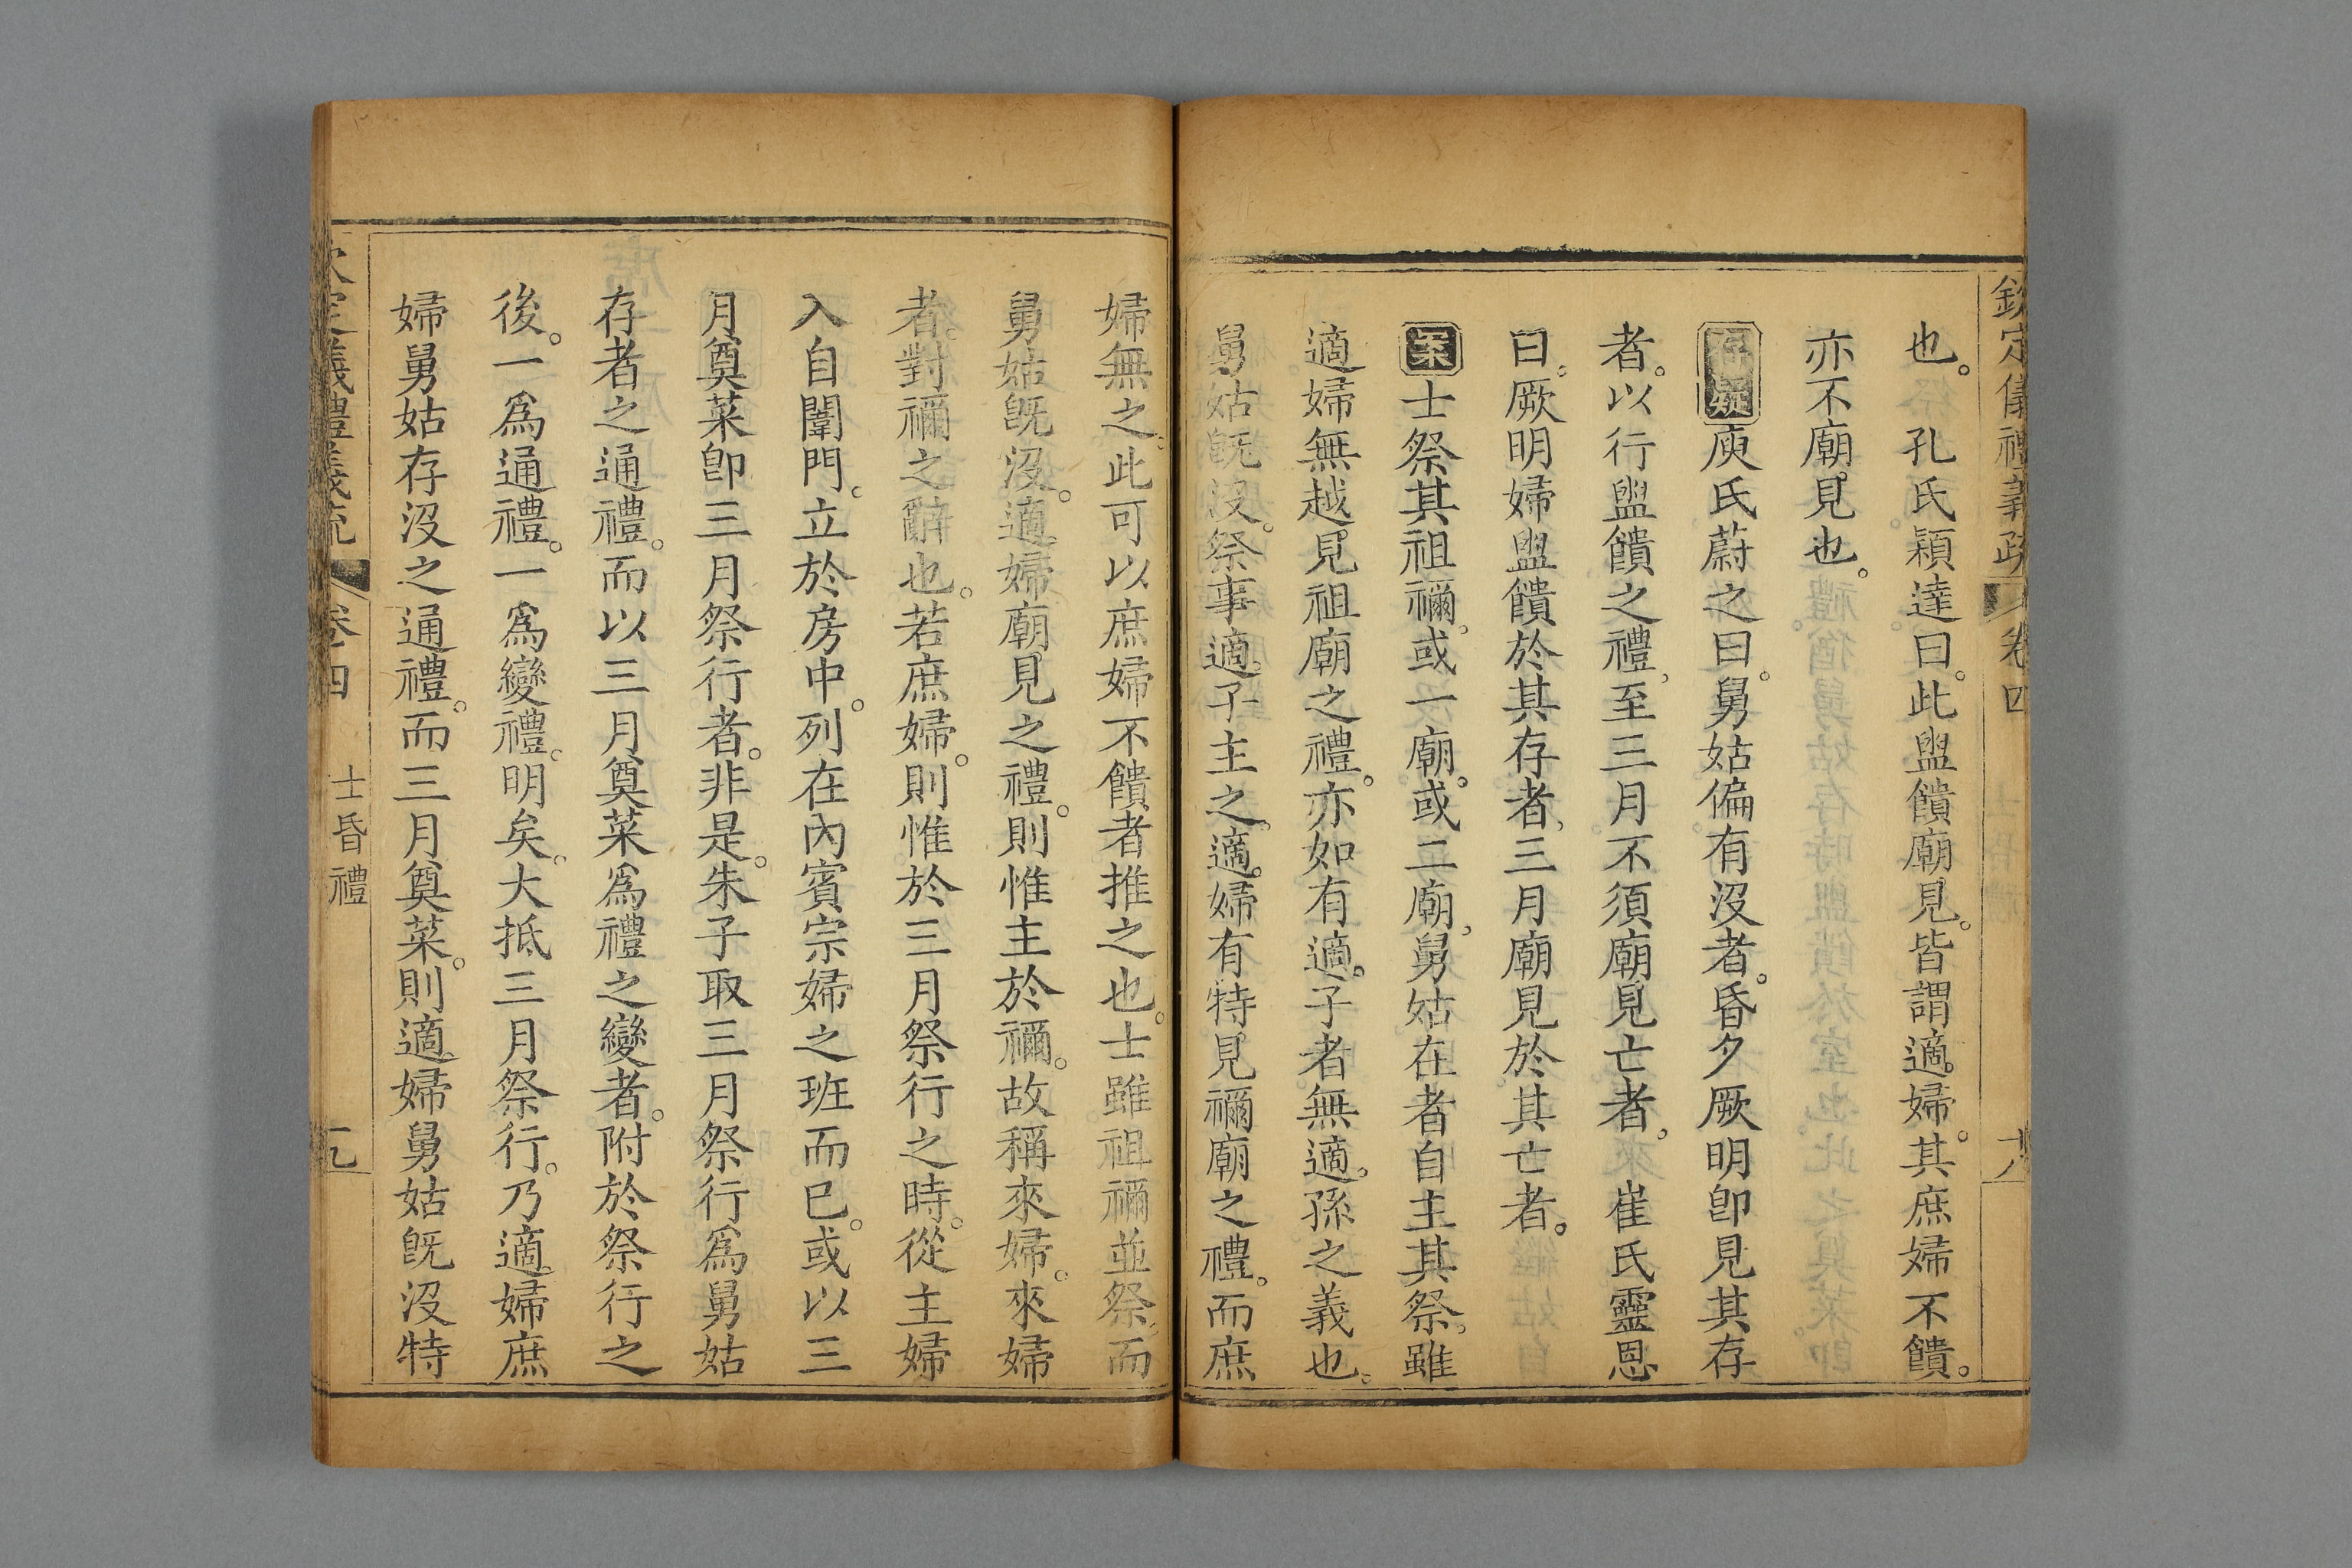 欽定儀禮義疏 卷四 十八
也。孔氏穎達曰。此盥饋廟見。皆謂適婦。其庶婦不饋。
亦不廟見也。
存疑庾氏蔚之曰。舅姑偏有沒者。昏夕厥明卽見其存
者。以行盥饋之禮、至三月不須廟見亡者、崔氏靈恩
曰。厥明婦盥饋於其存者、三月廟見於其亡者。
案士祭其祖禰。或一廟。或二廟、舅姑在者自主其祭、雖
適婦無越見祖廟之禮。亦如有適子者無適孫之義也。
舅姑旣沒。祭事適子主之。適婦有特見禰廟之禮。而庶
婦無之。此可以庶婦不饋者推之也。士雖祖禰並祭、而
舅姑旣沒。適婦廟見之禮。則惟主於禰。故稱來婦。來婦
者。對禰之辭也。若庶婦。則惟於三月祭行之時。從主婦
入自闈門。立於房中。列在內賓宗婦之班而已。或以三
月奠菜卽三月祭行者。非是。朱子取三月祭行爲舅姑
存者之通禮。而以三月奠菜爲禮之變者。附於祭行之
後。一爲通禮。一爲變禮。明矣。大抵三月祭行。乃適婦庶
婦舅姑存沒之通禮。而三月奠菜。則適婦舅姑旣沒特
定義禮義疏 卷四 士昏禮